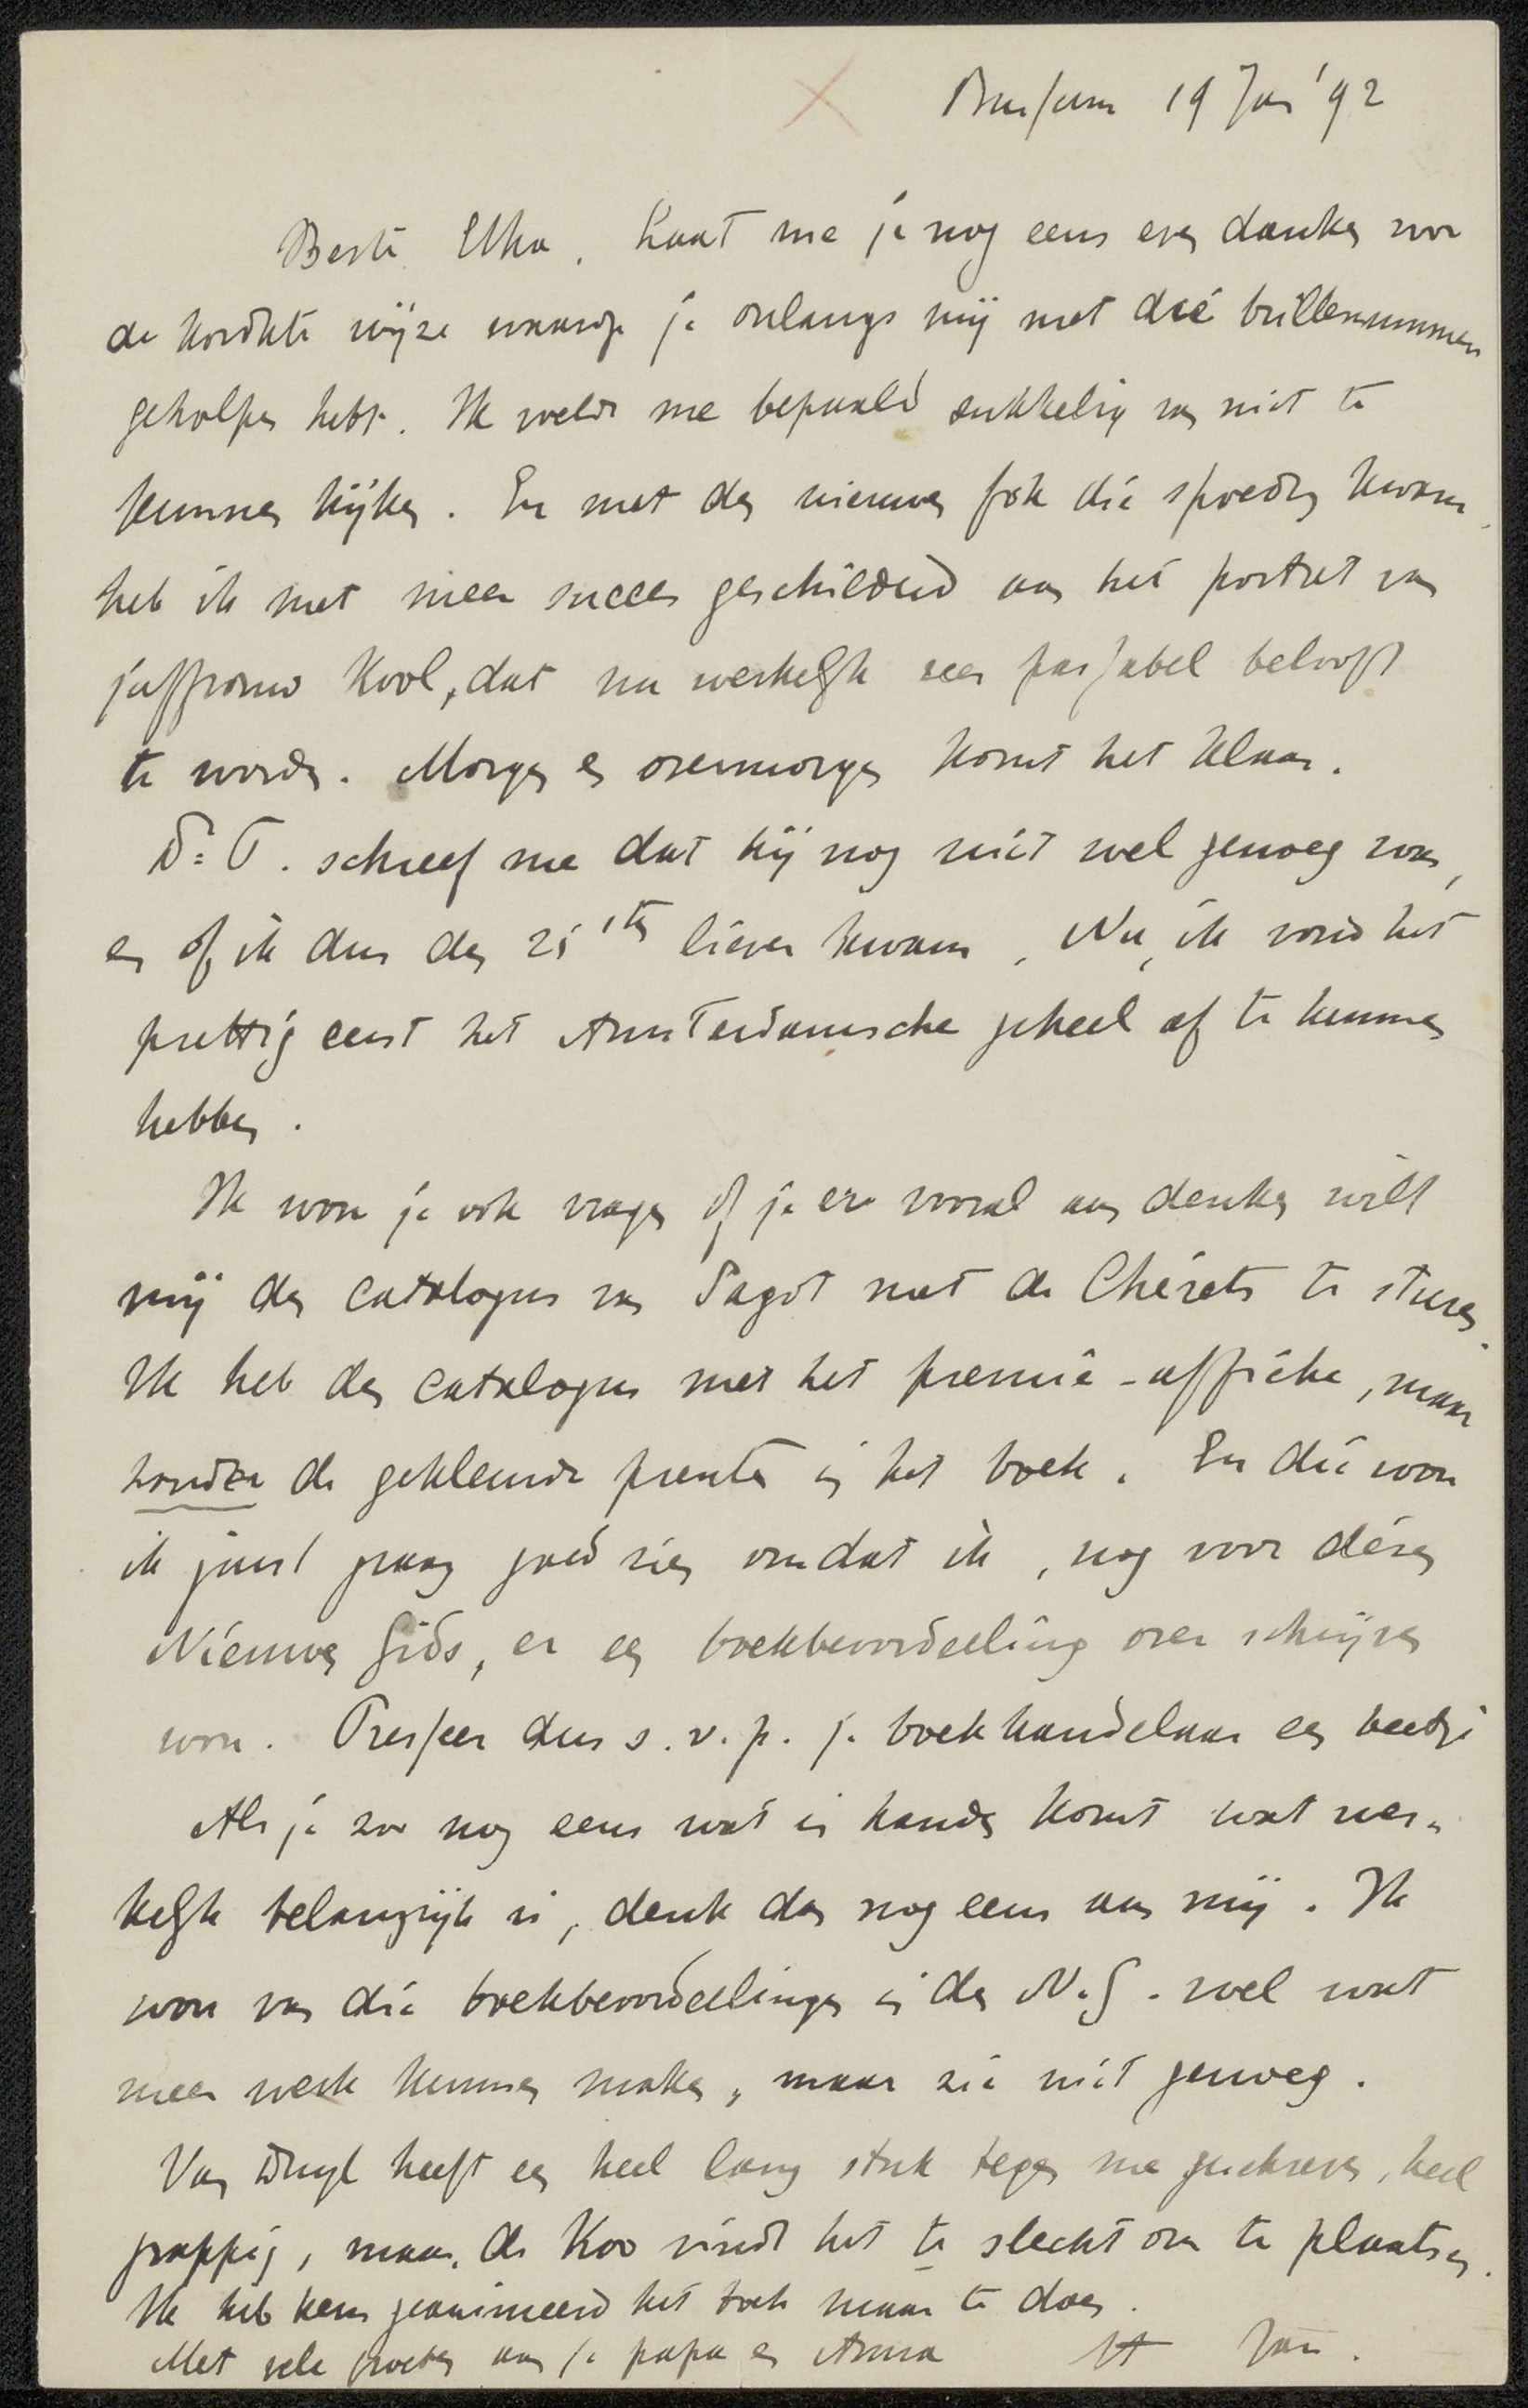 Bussum 19 Jan '92
Beste Etha. Laat me je nog eens even danken voor
de kordate wijze waarop je onlangs mij met die brillennummers
geholpen hebt. Ik voelde me bepaald sukkelig van niet te
kunnen kijken. En met den nieuwen fok die spoedig kwam,
heb ik met meer succes geschilderd aan het portret van
juffrouw Kool, dat nu werkelijk zeer passabel belooft
te worden. Morgen en overmorgen komt het klaar.
Dr. T. schreef me dat hij nog niet wel genoeg was,
en of ik dus den 25sten liever kwam. Nu, ik vond het
prettig eerst het Amsterdamsche geheel af te kunnen
hebben.
Ik wou je ook vragen of je er vooral aan denken wilt
mij den catalogus van Sagot met de Chérets te sturen.
Ik heb den catalogus met het premie-affiche, maar
zonder de gekleurde prenten in het boek. En die wou
ik juist graag goed zien omdat ik, nog voor dézen
Nieuwe Gids, er een boekbeoordeeling over schrijven
wou. Presseer dus s.v.p. je boekhandelaar een beetje
Als je zoo nog eens wat in handen komt wat wer-
kelijk belangrijk is, denk dan nog eens aan mij. Ik
wou van die boekbeoordeelingen in den N.G. wel wat
meer werk kunnen maken, maar zie niet genoeg.
Van Duyl heeft een heel lang stuk tegen me geschreven, heel
grappig, maar de Koo vindt het te slecht om te plaatsen.
Ik heb hem geanimeerd het toch maar te doen.
Met vele groeten aan je papa en Anna
Jan.